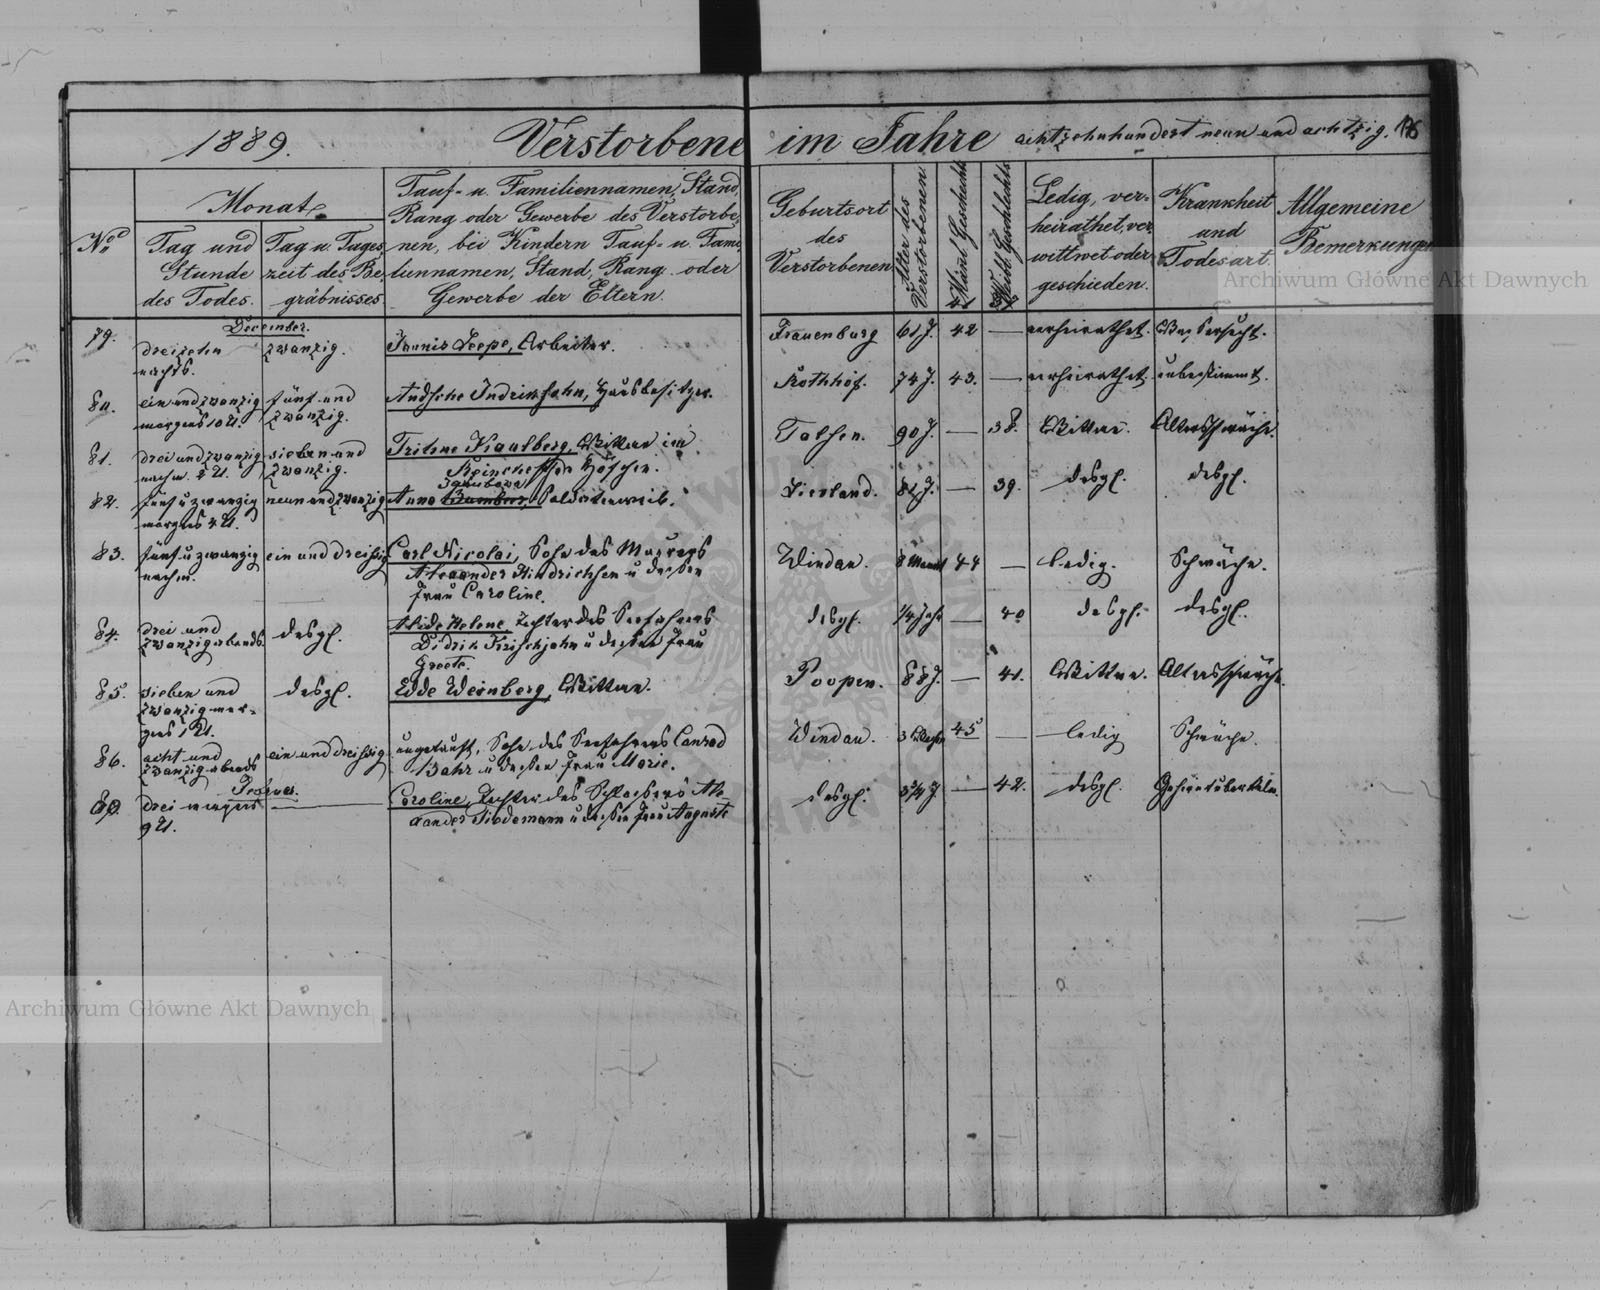 1889.
Verstorbene im Jahre achtzehnhundert neun und achtzig. 16
No
Monat
Tag und
Stunde
des Todes.
Tag u. Tages-
zeit des Be-
gräbnisses
Tauf- u. Familiennamen, Stand,
Rang oder Gewerbe des Verstorbe-
nen, bei Kindern Tauf- u. Fami-
liennamen, Stand, Rang oder
Gewerbe der Eltern.
Geburtsort
des
Verstorbenen
Alter des
Verstorbenen
Mänl. Geschlechts
Weibl. Geschlechts
Ledig, ver-
heirathet, ver-
wittwet oder
geschieden.
Krankheit
und
Todesart.
Allgemeine
Bemerkungen
December.
79.
dreizehn
nachts.
zwanzig.
Jannis Leepe, Arbeiter.
Frauenburg
61 J.
42
—
verheirathet.
Wassersucht.
80.
ein und zwanzig
morgens 10 U.
fünf und
zwanzig.
Andsche Indriksohn, Hausbesitzer.
Rothhof.
74 J.
43.
—
verheirathet.
unbestimmt.
81.
drei und zwanzig
nachm. 2 U.
sieben und
zwanzig.
Trihne Kaulberg, Wittwe im
Höfchen.
Talsen.
90 J.
—
38.
Wittwe.
Altersschwäche.
82.
fünf u zwanzig
morgens 4 U.
neun und zwanzig
Jakubowa
Anna Bambur, Soldatenweib.
Livland.
82 J.
—
39.
desgl.
desgl.
83.
fünf u zwanzig
nachm.
ein und dreissig
Carl Nicolai, Sohn des Maurers
Alexander Hindrichsen u dessen
Frau Caroline.
Windau.
8 Monat
44
—
ledig.
Schwäche.
84.
drei und
zwanzig abends.
desgl.
Alide Helene, Tochter des Seefahrers
Didrik Krischjahn u dessen Frau
Greete.
desgl.
1/4 Jahr
—
40
desgl.
desgl.
85.
sieben und
zwanzig mor-
gens 1 U.
desgl.
Edde Weinberg, Wittwe.
Poopen.
88 J.
—
41.
Wittwe.
Altersschwäche.
86.
acht und
zwanzig abends
ein und dreissig
ungetauft, Sohn des Seefahrers Conrad
Bahr u dessen Frau Marie.
Windau.
3 Wochen
45
—
ledig
Schwäche.
Januar.
drei morgens
9 U.
—
Caroline, Tochter des Schlossers Ale-
xander Tiedemann u dessen Frau Auguste
desgl.
3 3/4 J
—
42.
desgl.
Archiwum Główne Akt Dawnych
Archiwum Główne Akt Dawnych